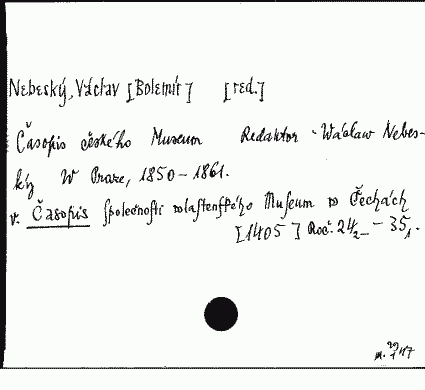 Nebeský, Václav [Bolemír] [red.]
Časopis českého Museum Redaktor Wácław Nebes-
ký W Praze, 1850-1861.
v. Časopis společnosti wlastenského Museum w Čechách
[1405] Roč. 24/2 - 35/1.